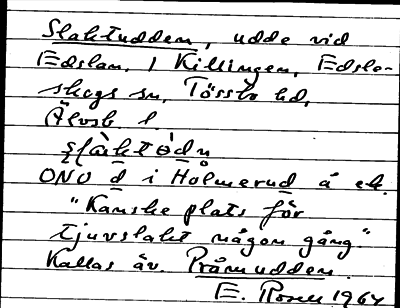 Slaktudden, udde vid
Edslan, i Killingen, Edsle-
skogs sn, Tössbo hd,
Älvsb. l.
ONO d i Holmerud å ek.
"Kanske plats för
tjuvslakt någon gång."
Kallas äv. Pråmudden.
E. Rosell 1964